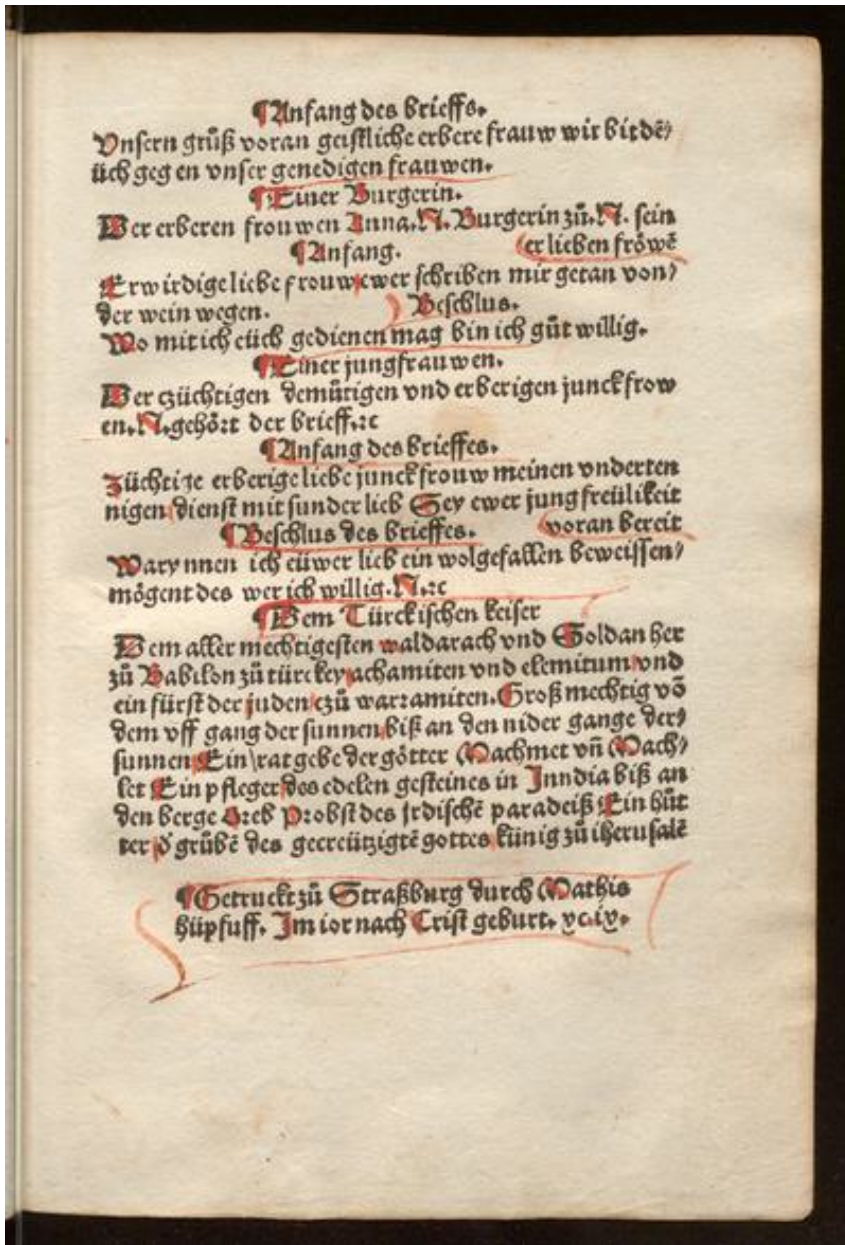 ¶Anfang des brieffs.
Vnsern grůß voran geistliche erbere frauw wir bitdē/
üch geg en vnser genedigen frauwen.
¶Einer Burgerin.
Der erberen frouwen Anna.N. Burgerin zů.N. sein
¶Anfang. (er lieben fröwē
Erwirdige liebe frouw ewer schriben mir getan von/
der wein wegen. ) Beschlus.
Wo mit ich eüch gedienen mag bin ich gůt willig.
¶Einer jungfrauwen.
Der czüchtigen demůtigen vnd erberigen junckfrow
en.N.gehört der brieff.ꝛc
¶Anfang des brieffes.
Züchtige erberige liebe junckfrouw meinen vnderten
nigen dienst mit sunder lieb Sey ewer jungfreülikeit
¶Beschlus des brieffes. (voran bereit
Warynnen ich eüwer lieb ein wolgefallen beweissen/
mögent des wer ich willig.N.ꝛc
¶Dem Türckischen keiser
Dem aller mechtigesten waldarach vnd Soldan her
zů Babilon zů türckey achamiten vnd elemitum vnd
ein fürst der juden czů warramiten. Groß mechtig vō
dem vff gang der sunnen biß an den nider gange der/
sunnen Ein ratgebe der götter Machmet vn̄ Mach/
let Ein pfleger des edelen gesteines in Inndia biß an
den berge Oreb Probst des jrdischē paradeiß Ein hůt
ter d' grůbē des gecreützigtē gottes künig zů iherusalē
¶Getruckt zů Straßburg durch Mathis
hüpfuff. Im ior nach Crist geburt. xcix.